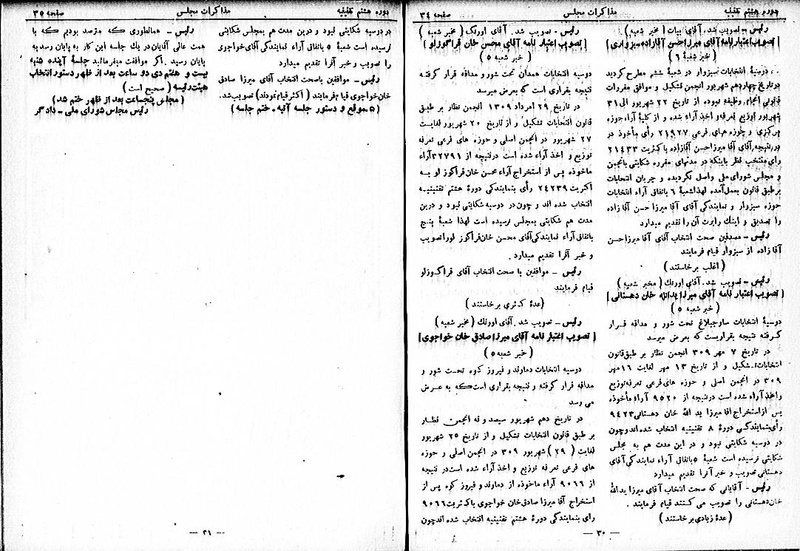 دوره هشتم تقنینیه
مذاکرات مجلس
صفحه ۳۴
رئیس ـ تصویب شد. آقای بیات (مخبر شعبه)
[تصویب اعتبار نامه آقای میرزا حسن آقا زاده سبزواری]
(خبر شعبه ۶)
دوسیهٔ انتخابات سبزوار در شعبهٔ ششم مطرح گردید
در تاریخ چهاردهم شهریور انجمن تشکیل و موافق مقررات
قانونی انجام وظیفه نموده از تاریخ ۲۲ شهریور الی ۳۱
شهریور توزیع تعرفه و اخذ آراء شده و از کلیهٔ آراء حوزه
مرکزی و حوزه های فرعی ۲۱۹۲۷ رأی مأخوذ در
نتیجه آقای آقا میرزا حسن آقازاده با کثریت ۲۱۴۳۳
رأی منتخب نظر باینکه در مدتهای مقرره شکایتی بانجمن
و مجلس شورای ملی واصل نگردیده و جریان انتخابات
بر طبق قانون بعمل آمده لهذا شعبهٔ ۶ باتفاق آراء انتخابات
حوزه سبزوار و نمایندگی آقای آقا میرزا حسن آقا زاده
را تصدیق و اینک راپرت آن را تقدیم میدارد
رئیس ـ مصدقین صحت انتخاب آقای آقا میرزا حسن
آقا زاده از سبزوار قیام فرمایند
(اغلب برخاستند)
رئیس ـ تصویب شد. آقای اورنگ (مخبر شعبه)
[تصویب اعتبار نامه آقای میرزا یدالله خان دهستانی]
(خبر شعبه ۵)
دوسیهٔ انتخابات ساوجبلاغ تحت شور و مداقه قرار
گرفته نتیجه بقراریست که بعرض میرسد
در تاریخ ۷ مهر ۳۰۹ انجمن نظار بر طبق قانون
انتخابات تشکیل و از تاریخ ۱۳ مهر لغایت ۱۶ مهر
۳۰۹ در انجمن اصلی و حوزه های فرعی تعرفه توزیع
و اخذ آراء شده است در نتیجه از ۹۵۲۰ آراء مأخوذه
پس از استخراج آقا میرزا ید الله خان دهستانی ۹۴۲۳
رأی بنمایندگی دورهٔ ۸ تقنینیه انتخاب شده اند و چون
در دوسیه شکایتی نبود و در این مدت هم به مجلس
شکایتی نرسیده است شعبهٔ ۵ باتفاق آراء نمایندگی آقای
دهستانی تصویب و خبر آنرا تقدیم میدارد
رئیس ـ آقایانی که صحت انتخاب آقای میرزا یدالله
خان دهستانی را تصویب می کنند قیام فرمایند.
(عدهٔ زیادی برخاستند)
رئیس ـ تصویب شد. آقای اورنگ (مخبر شعبه)
[تصویب اعتبار نامه آقای محسن خان قراگوزلو]
(خبر شعبه ۵)
دوسیه انتخابات همدان تحت شور و مداقه قرار گرفته
نتیجه بقراری است که بعرض میرسد
در تاریخ ۲۹ امرداد ۱۳۰۹ انجمن نظار بر طبق
قانون انتخابات تشکیل و از تاریخ ۲۰ شهریور لغایت
۲۷ شهریور در انجمن اصلی و حوزه های فرعی تعرفه
توزیع و اخذ آراء شده است در نتیجه از ۳۲۷۹۱ آراء
مأخوذه پس از استخراج آراء محسن خان قراگوزلو به
اکثریت ۲۴۲۳۹ رأی بنمایندگی دورهٔ هشتم تقنینیه
انتخاب شده اند و چون در دوسیه شکایتی نبود و در این
مدت هم شکایتی بمجلس نرسیده است لهذا شعبهٔ پنج
باتفاق آراء نمایندگی آقای محسن خان قراگوزلو را تصویب
و خبر آنرا تقدیم میدارد.
رئیس ـ موافقین با صحت انتخاب آقای قراگوزلو
قیام فرمایند
(عدهٔ کثیری برخاستند)
رئیس ـ تصویب شد. آقای اورنگ (مخبر شعبه)
[تصویب اعتبار نامه آقای میرزا صادق خان خواجوی]
(خبر شعبه ۵)
دوسیه انتخابات دماوند و فیروز کوه تحت شور و
مداقه قرار گرفته و نتیجه بقراری است که به عرض
می رسد
در تاریخ دهم شهریور سیصد و نه انجمن نظار
بر طبق قانون انتخابات تشکیل و از تاریخ ۲۵ شهریور
لغایت (۲۹) شهریور ۳۰۹ در انجمن اصلی و حوزه
های فرعی تعرفه توزیع و اخذ آراء شده است در نتیجه
از ۹۰۶۶ آراء مأخوذه از دماوند و فیروز کوه پس از
استخراج آقا میرزا صادق خان خواجوی باکثریت ۹۰۶۶
رأی بنمایندگی دورهٔ هشتم تقنینیه انتخاب شده اند چون
ـ ۳۰ ـ
دوره هشتم تقنینیه
مذاکرات مجلس
صفحه ۳۵
در دوسیه شکایتی نبود و در این مدت هم بمجلس شکایتی
نرسیده است شعبهٔ ۵ باتفاق آراء نمایندگی آقای خواجوی
را تصویب و خبر آنرا تقدیم میدارد
رئیس ـ موافقین با صحت انتخاب آقای میرزا صادق
خان خواجوی قیام فرمایند (اکثر قیام نمودند) تصویب شد.
(۵ ـ موقع و دستور جلسه آتیه ـ ختم جلسه)
رئیس ـ همانطوری که مترصد بودیم که با
همت عالی آقایان در یک جلسه این کار به پایان رسد به
پایان رسید. اگر موافقت میفرمائید جلسهٔ آینده شنبه
بیست و هشتم دی دو ساعت بعد از ظهر دستور انتخاب
هیئت رئیسه (صحیح است)
(مجلس پنجساعت بعد از ظهر ختم شد)
رئیس مجلس شورای ملی ـ دادگر
ـ ۳۱ ـ